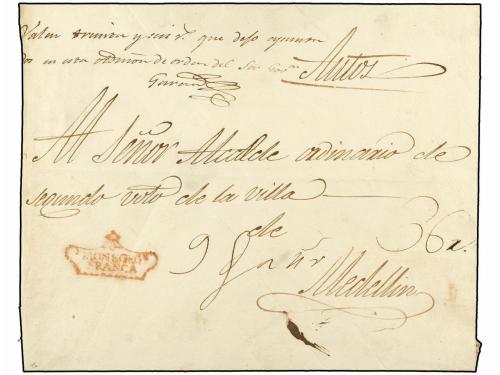 Valen treinta y seis r.^s que dejo apunta
dos en esta administ.^n de orden del Sor
Garcia
Autos
Al Señor Alcalde ordinario de
segundo voto de la villa
de
36 r.
9
Medellin
FRANCA